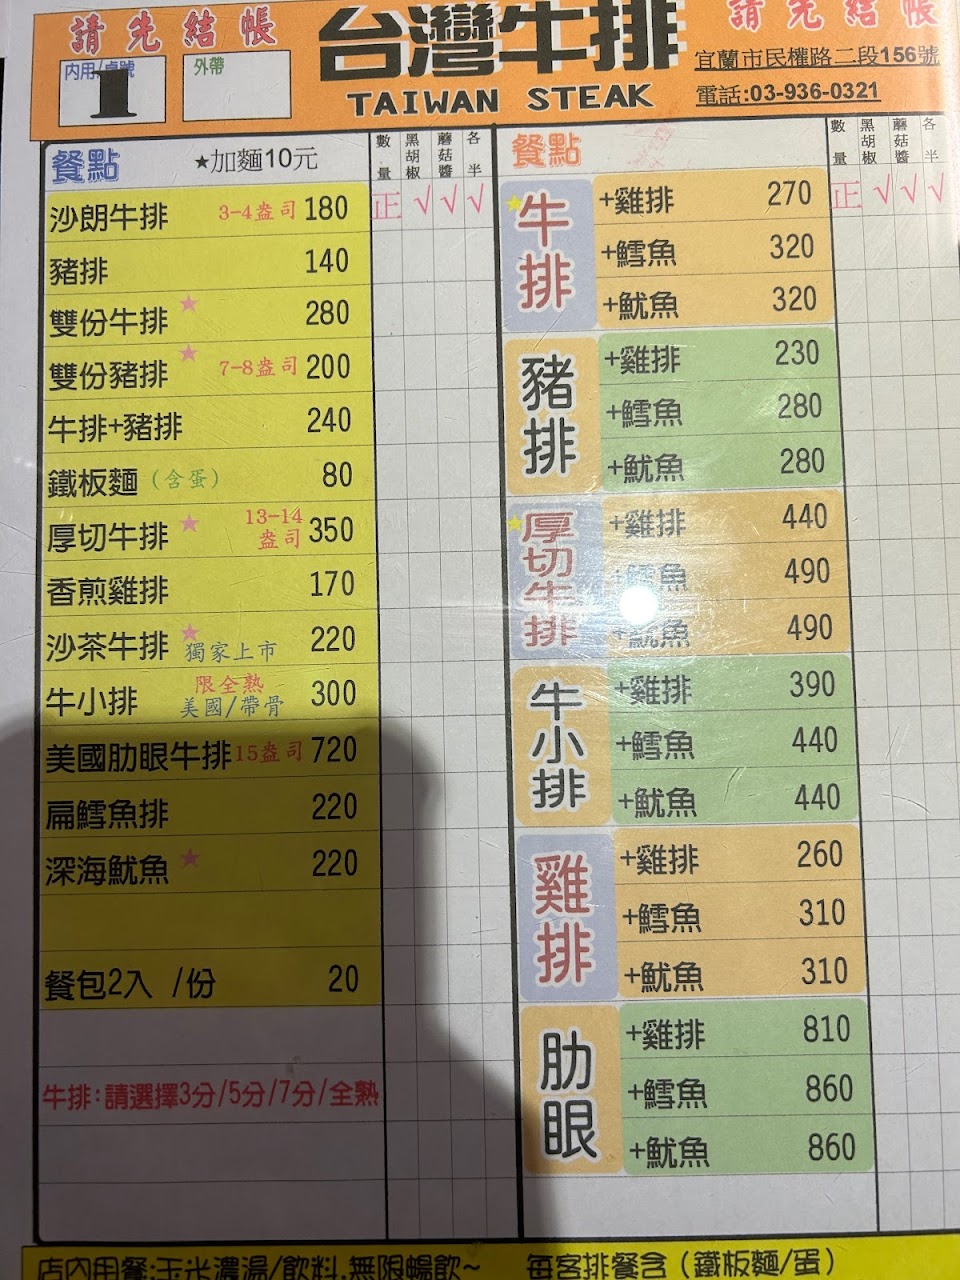 請先結帳
台灣牛排
請先結帳
內用/桌號
1
外帶
TAIWAN STEAK
宜蘭市民權路二段156號
電話:03-936-0321
餐點 ★加麵10元 數量 黑胡椒 蘑菇醬 各半
沙朗牛排 3-4盎司 180 正 √ √ √
豬排 140
雙份牛排★ 280
雙份豬排★ 7-8盎司 200
牛排+豬排 240
鐵板麵(含蛋) 80
厚切牛排★ 13-14盎司 350
香煎雞排 170
沙茶牛排★ 獨家上市 220
牛小排 限全熟 美國/帶骨 300
美國肋眼牛排 15盎司 720
扁鱈魚排 220
深海魷魚★ 220
餐包2入 /份 20
牛排:請選擇3分/5分/7分/全熟
餐點 數量 黑胡椒 蘑菇醬 各半
★牛排
+雞排 270 正 √ √ √
+鱈魚 320
+魷魚 320
豬排
+雞排 230
+鱈魚 280
+魷魚 280
★厚切牛排
+雞排 440
+鱈魚 490
+魷魚 490
牛小排
+雞排 390
+鱈魚 440
+魷魚 440
雞排
+雞排 260
+鱈魚 310
+魷魚 310
肋眼
+雞排 810
+鱈魚 860
+魷魚 860
店內用餐:玉米濃湯/飲料.無限暢飲~ 每客排餐含(鐵板麵/蛋)